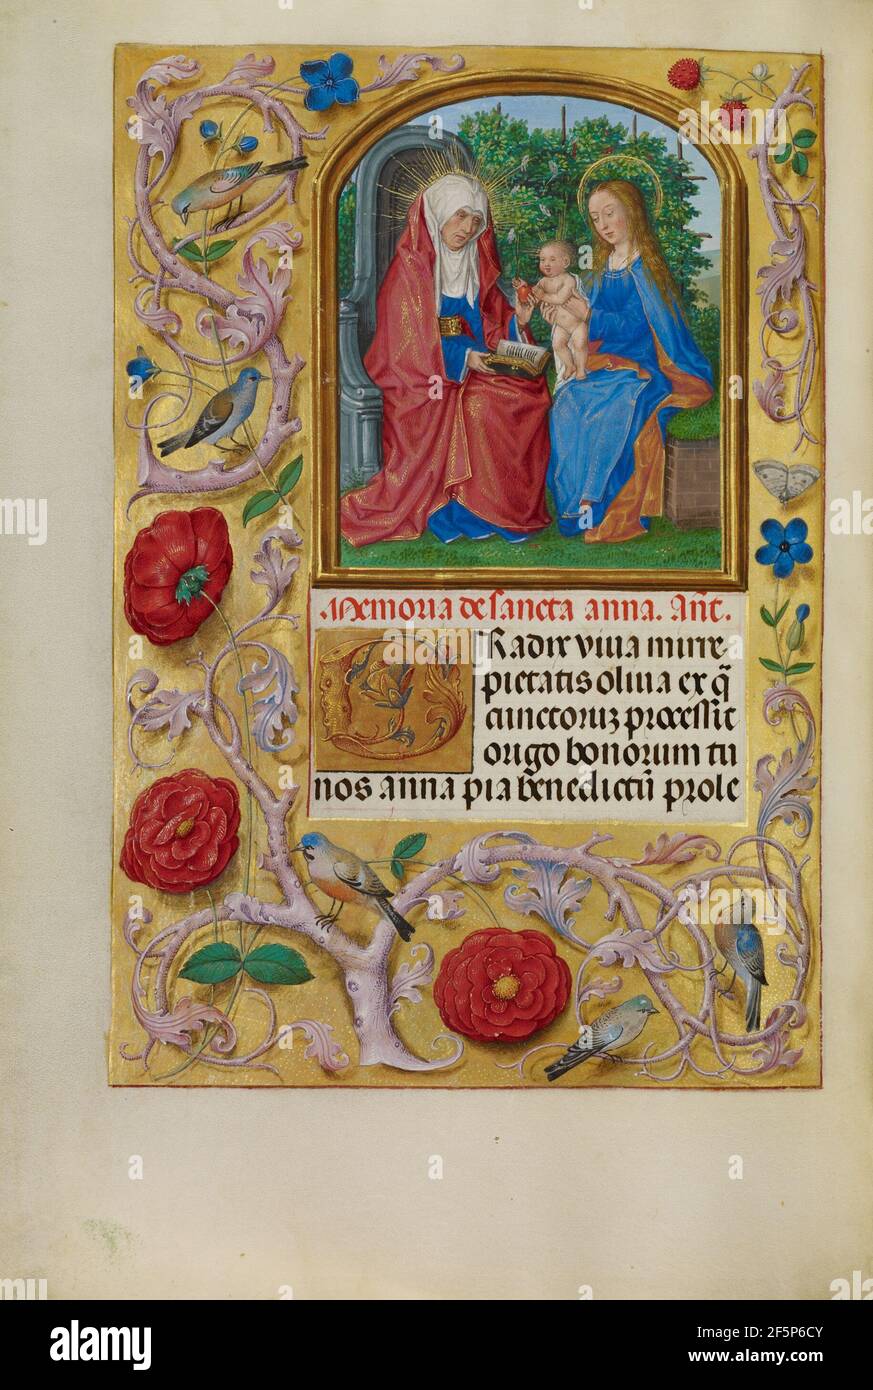 Memoria de sancta anna. Añt.
Radix viva mire
pietatis oliva ex q̃
cunctoruz processit
origo bonorum tu
nos anna pia benedictũ prole
alamy
Image ID: 2F5P6CY
www.alamy.com